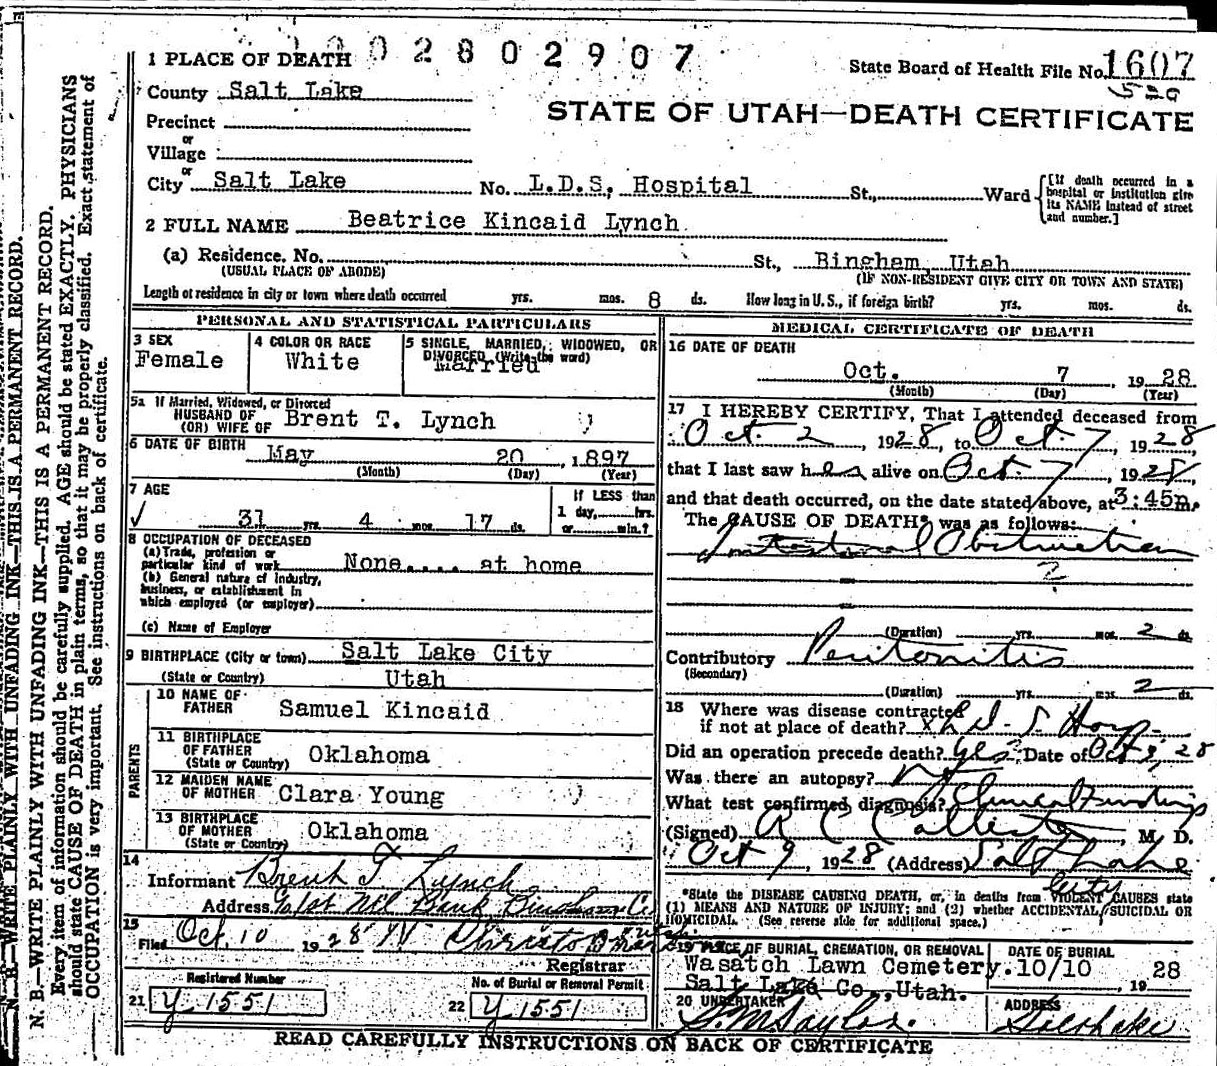 1002802907
1 PLACE OF DEATH
State Board of Health File No. 1607
529
County Salt Lake
STATE OF UTAH—DEATH CERTIFICATE
Precinct
or
Village
or
City Salt Lake No. L.D.S. Hospital St., Ward
[If death occurred in a hospital or institution give its NAME instead of street and number.]
2 FULL NAME Beatrice Kincaid Lynch
(a) Residence. No. St., Bingham, Utah
(USUAL PLACE OF ABODE) (IF NON-RESIDENT GIVE CITY OR TOWN AND STATE)
Length of residence in city or town where death occurred yrs. mos. 8 ds. How long in U. S., if foreign birth? yrs. mos. ds.
PERSONAL AND STATISTICAL PARTICULARS
3 SEX
Female
4 COLOR OR RACE
White
5 SINGLE, MARRIED, WIDOWED, OR
DIVORCED (Write the word)
Married
5a If Married, Widowed, or Divorced
HUSBAND OF
(OR) WIFE OF Brent T. Lynch
6 DATE OF BIRTH May 20, 1897
(Month) (Day) (Year)
7 AGE
31 yrs. 4 mos. 17 ds.
If LESS than
1 day, hrs.
or min.?
8 OCCUPATION OF DECEASED
(a) Trade, profession or
particular kind of work None.... at home
(b) General nature of industry,
business, or establishment in
which employed (or employer)
(c) Name of Employer
9 BIRTHPLACE (City or town) Salt Lake City
(State or Country) Utah
PARENTS
10 NAME OF
FATHER Samuel Kincaid
11 BIRTHPLACE
OF FATHER Oklahoma
(State or Country)
12 MAIDEN NAME
OF MOTHER Clara Young
13 BIRTHPLACE
OF MOTHER Oklahoma
(State or Country)
14
Informant Brent T Lynch
Address 1st Ntl Bank Bingham
15
Filed Oct. 10 1928
Registrar
Registered Number
21 Y 1551
No. of Burial or Removal Permit
22 Y 1551
MEDICAL CERTIFICATE OF DEATH
16 DATE OF DEATH
Oct. 7, 1928
(Month) (Day) (Year)
17 I HEREBY CERTIFY, That I attended deceased from
Oct. 2, 1928, to Oct. 7, 1928
that I last saw her alive on Oct. 7, 1928,
and that death occurred, on the date stated above, at 3:45 m.
The CAUSE OF DEATH* was as follows:
Intestinal Obstruction
2
(Duration) yrs. mos. 2 ds.
Contributory Peritonitis
(Secondary)
(Duration) yrs. mos. 2 ds.
18 Where was disease contracted
if not at place of death? x L.D.S. Hosp.
Did an operation precede death? Yes Date of Oct 28
Was there an autopsy?
What test confirmed diagnosis? Clinical Findings
(Signed) M. D.
Oct 9, 1928 (Address) Salt Lake
City
*State the DISEASE CAUSING DEATH, or, in deaths from VIOLENT CAUSES state
(1) MEANS AND NATURE OF INJURY; and (2) whether ACCIDENTAL, SUICIDAL OR
HOMICIDAL. (See reverse side for additional space.)
19 PLACE OF BURIAL, CREMATION, OR REMOVAL
Wasatch Lawn Cemetery.
Salt Lake Co., Utah.
DATE OF BURIAL
10/10, 1928
20 UNDERTAKER
S. M. Taylor
ADDRESS
Salt Lake
READ CAREFULLY INSTRUCTIONS ON BACK OF CERTIFICATE
N. B.—WRITE PLAINLY WITH UNFADING INK—THIS IS A PERMANENT RECORD.
N. B.—WRITE PLAINLY WITH UNFADING INK—THIS IS A PERMANENT RECORD.
Every item of information should be carefully supplied. AGE should be stated EXACTLY. PHYSICIANS
should state CAUSE OF DEATH in plain terms, so that it may be properly classified. Exact statement of
OCCUPATION is very important. See instructions on back of certificate.